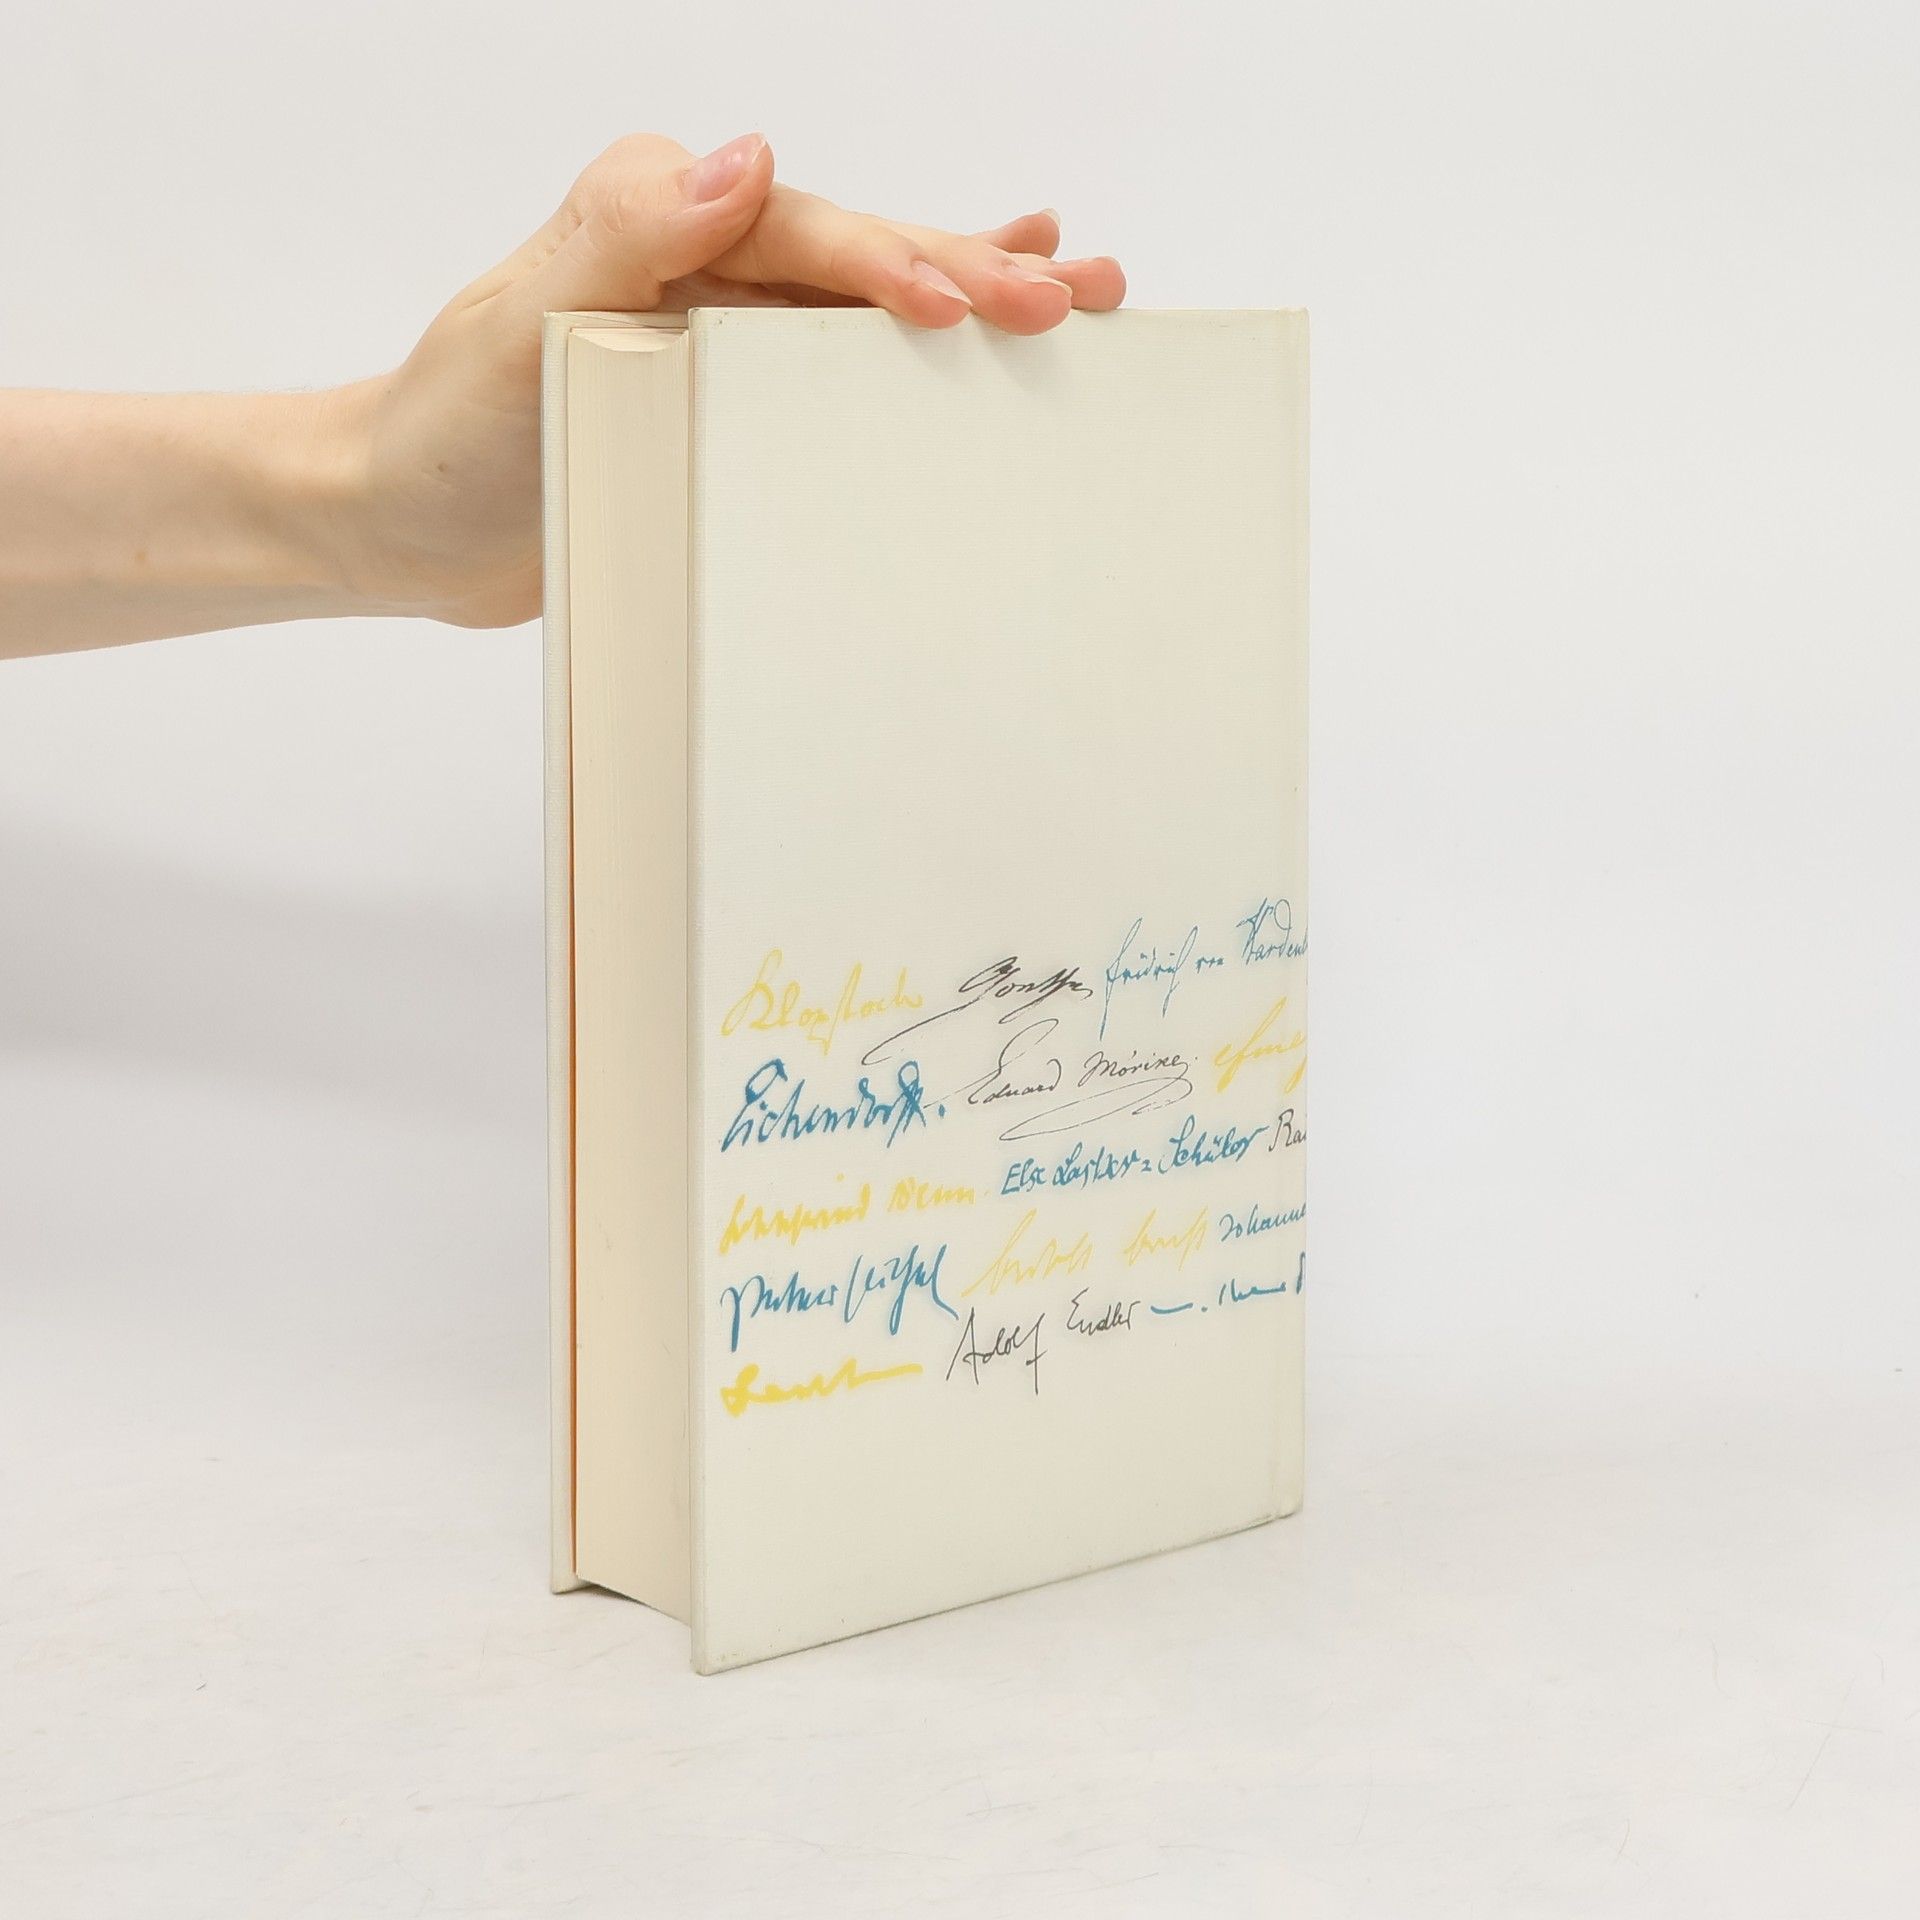 Klopstock Goethe Friedrich von Hardenb
Eichendorff. Eduard Mörike.
Gottfried Benn. Else Lasker=Schüler Rai
Peter Huchel bertolt brecht Johanne
Adolf Endler